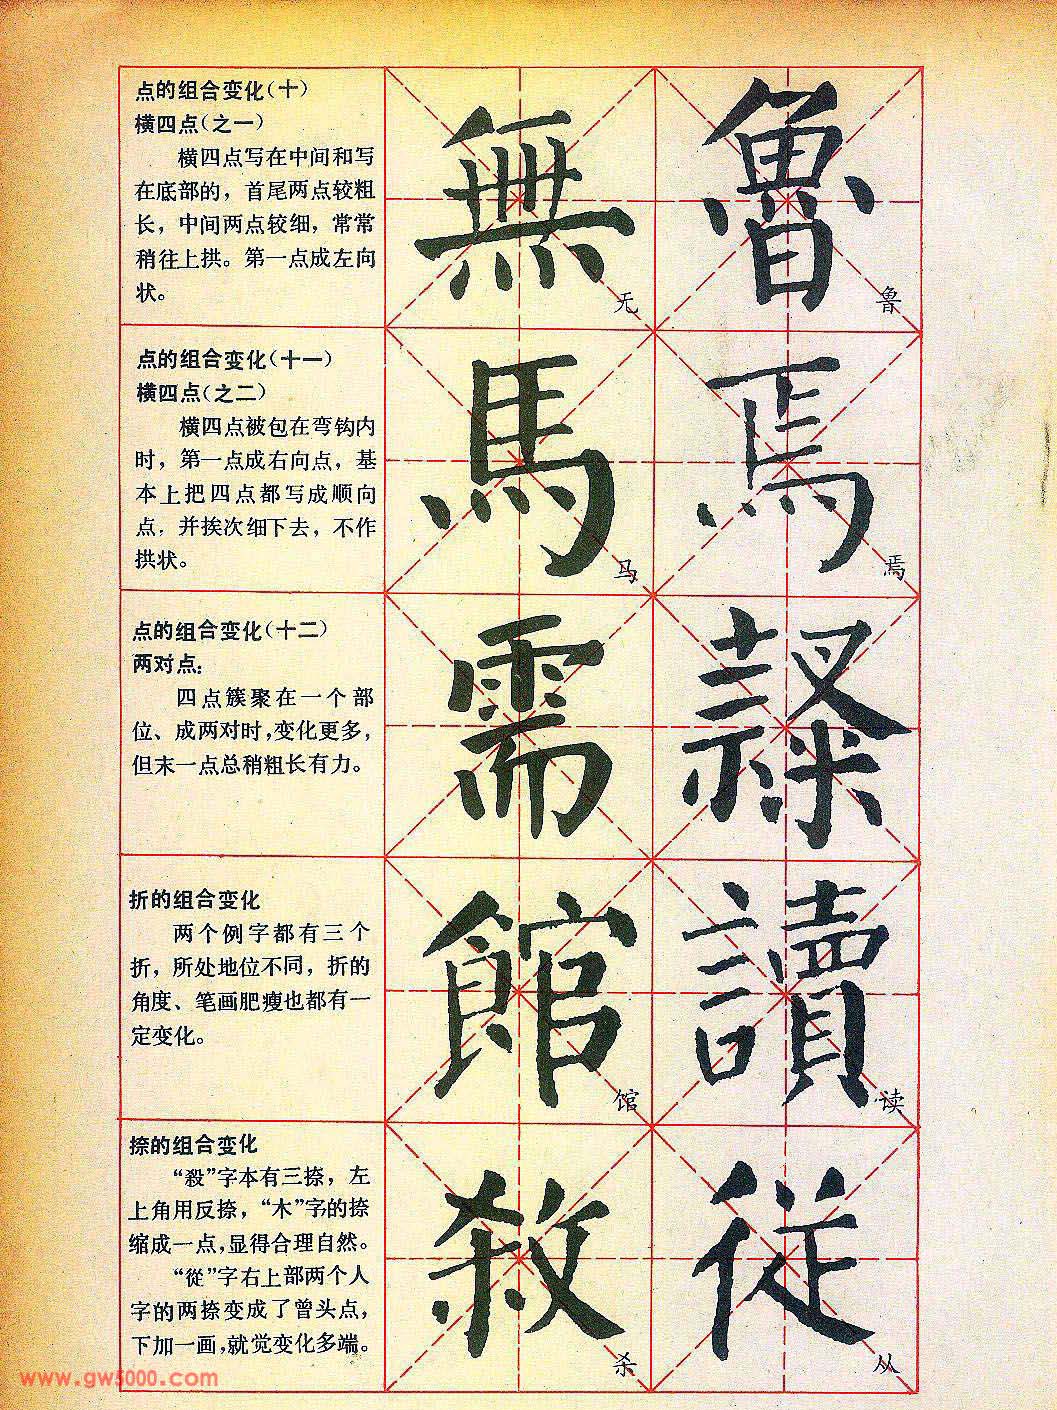 点的组合变化（十）
横四点（之一）
横四点写在中间和写
在底部的，首尾两点较粗
长，中间两点较细，常常
稍往上拱。第一点成左向
状。
無
无
魯
鲁
点的组合变化（十一）
横四点（之二）
横四点被包在弯钩内
时，第一点成右向点，基
本上把四点都写成顺向
点，并挨次细下去，不作
拱状。
馬
马
焉
焉
点的组合变化（十二）
两对点：
四点簇聚在一个部
位、成两对时，变化更多，
但末一点总稍粗长有力。
需
折的组合变化
两个例字都有三个
折，所处地位不同，折的
角度、笔画肥瘦也都有一
定变化。
館
馆
讀
读
捺的组合变化
“殺”字本有三捺，左
上角用反捺，“木”字的捺
缩成一点，显得合理自然。
“從”字右上部两个人
字的两捺变成了曾头点，
下加一画，就觉变化多端。
杀
從
从
www.gw5000.com